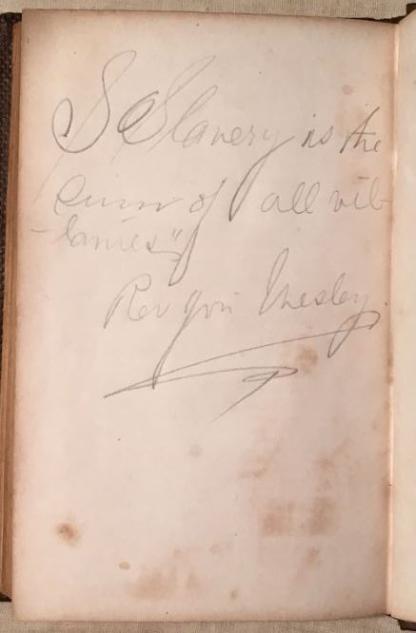 S Slavery is the
sum of all vil-
-lanies"
Rev Jon Wesley